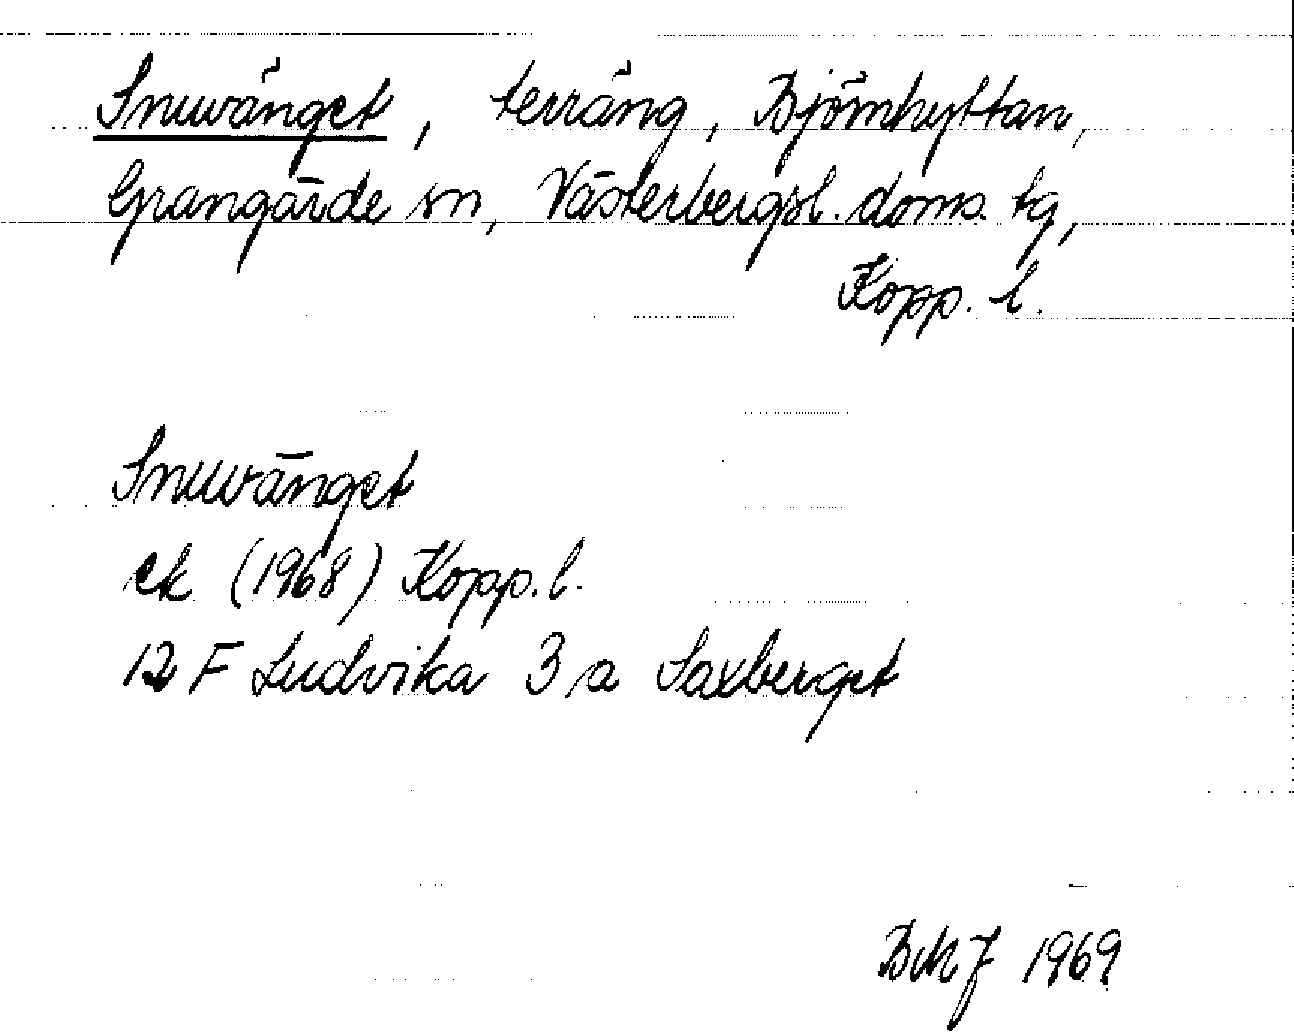 Snuvänget, terräng, Björnhyttan,
Grangärde sn, Västerbergsl. doms. tg,
Kopp. l.
Snuvänget
ek (1968) Kopp. l.
12 F Ludvika 3 a Saxberget
1969